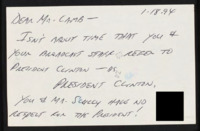 1-18-94
DEAR MR. LAMB —
ISN'T ABOUT TIME THAT YOU &
YOUR BROADCAST STAFF REFER TO
PRESIDENT CLINTON — AS
PRESIDENT CLINTON.
YOU & MR. SCULLY HAVE NO
RESPECT FOR THE PRESIDENT!